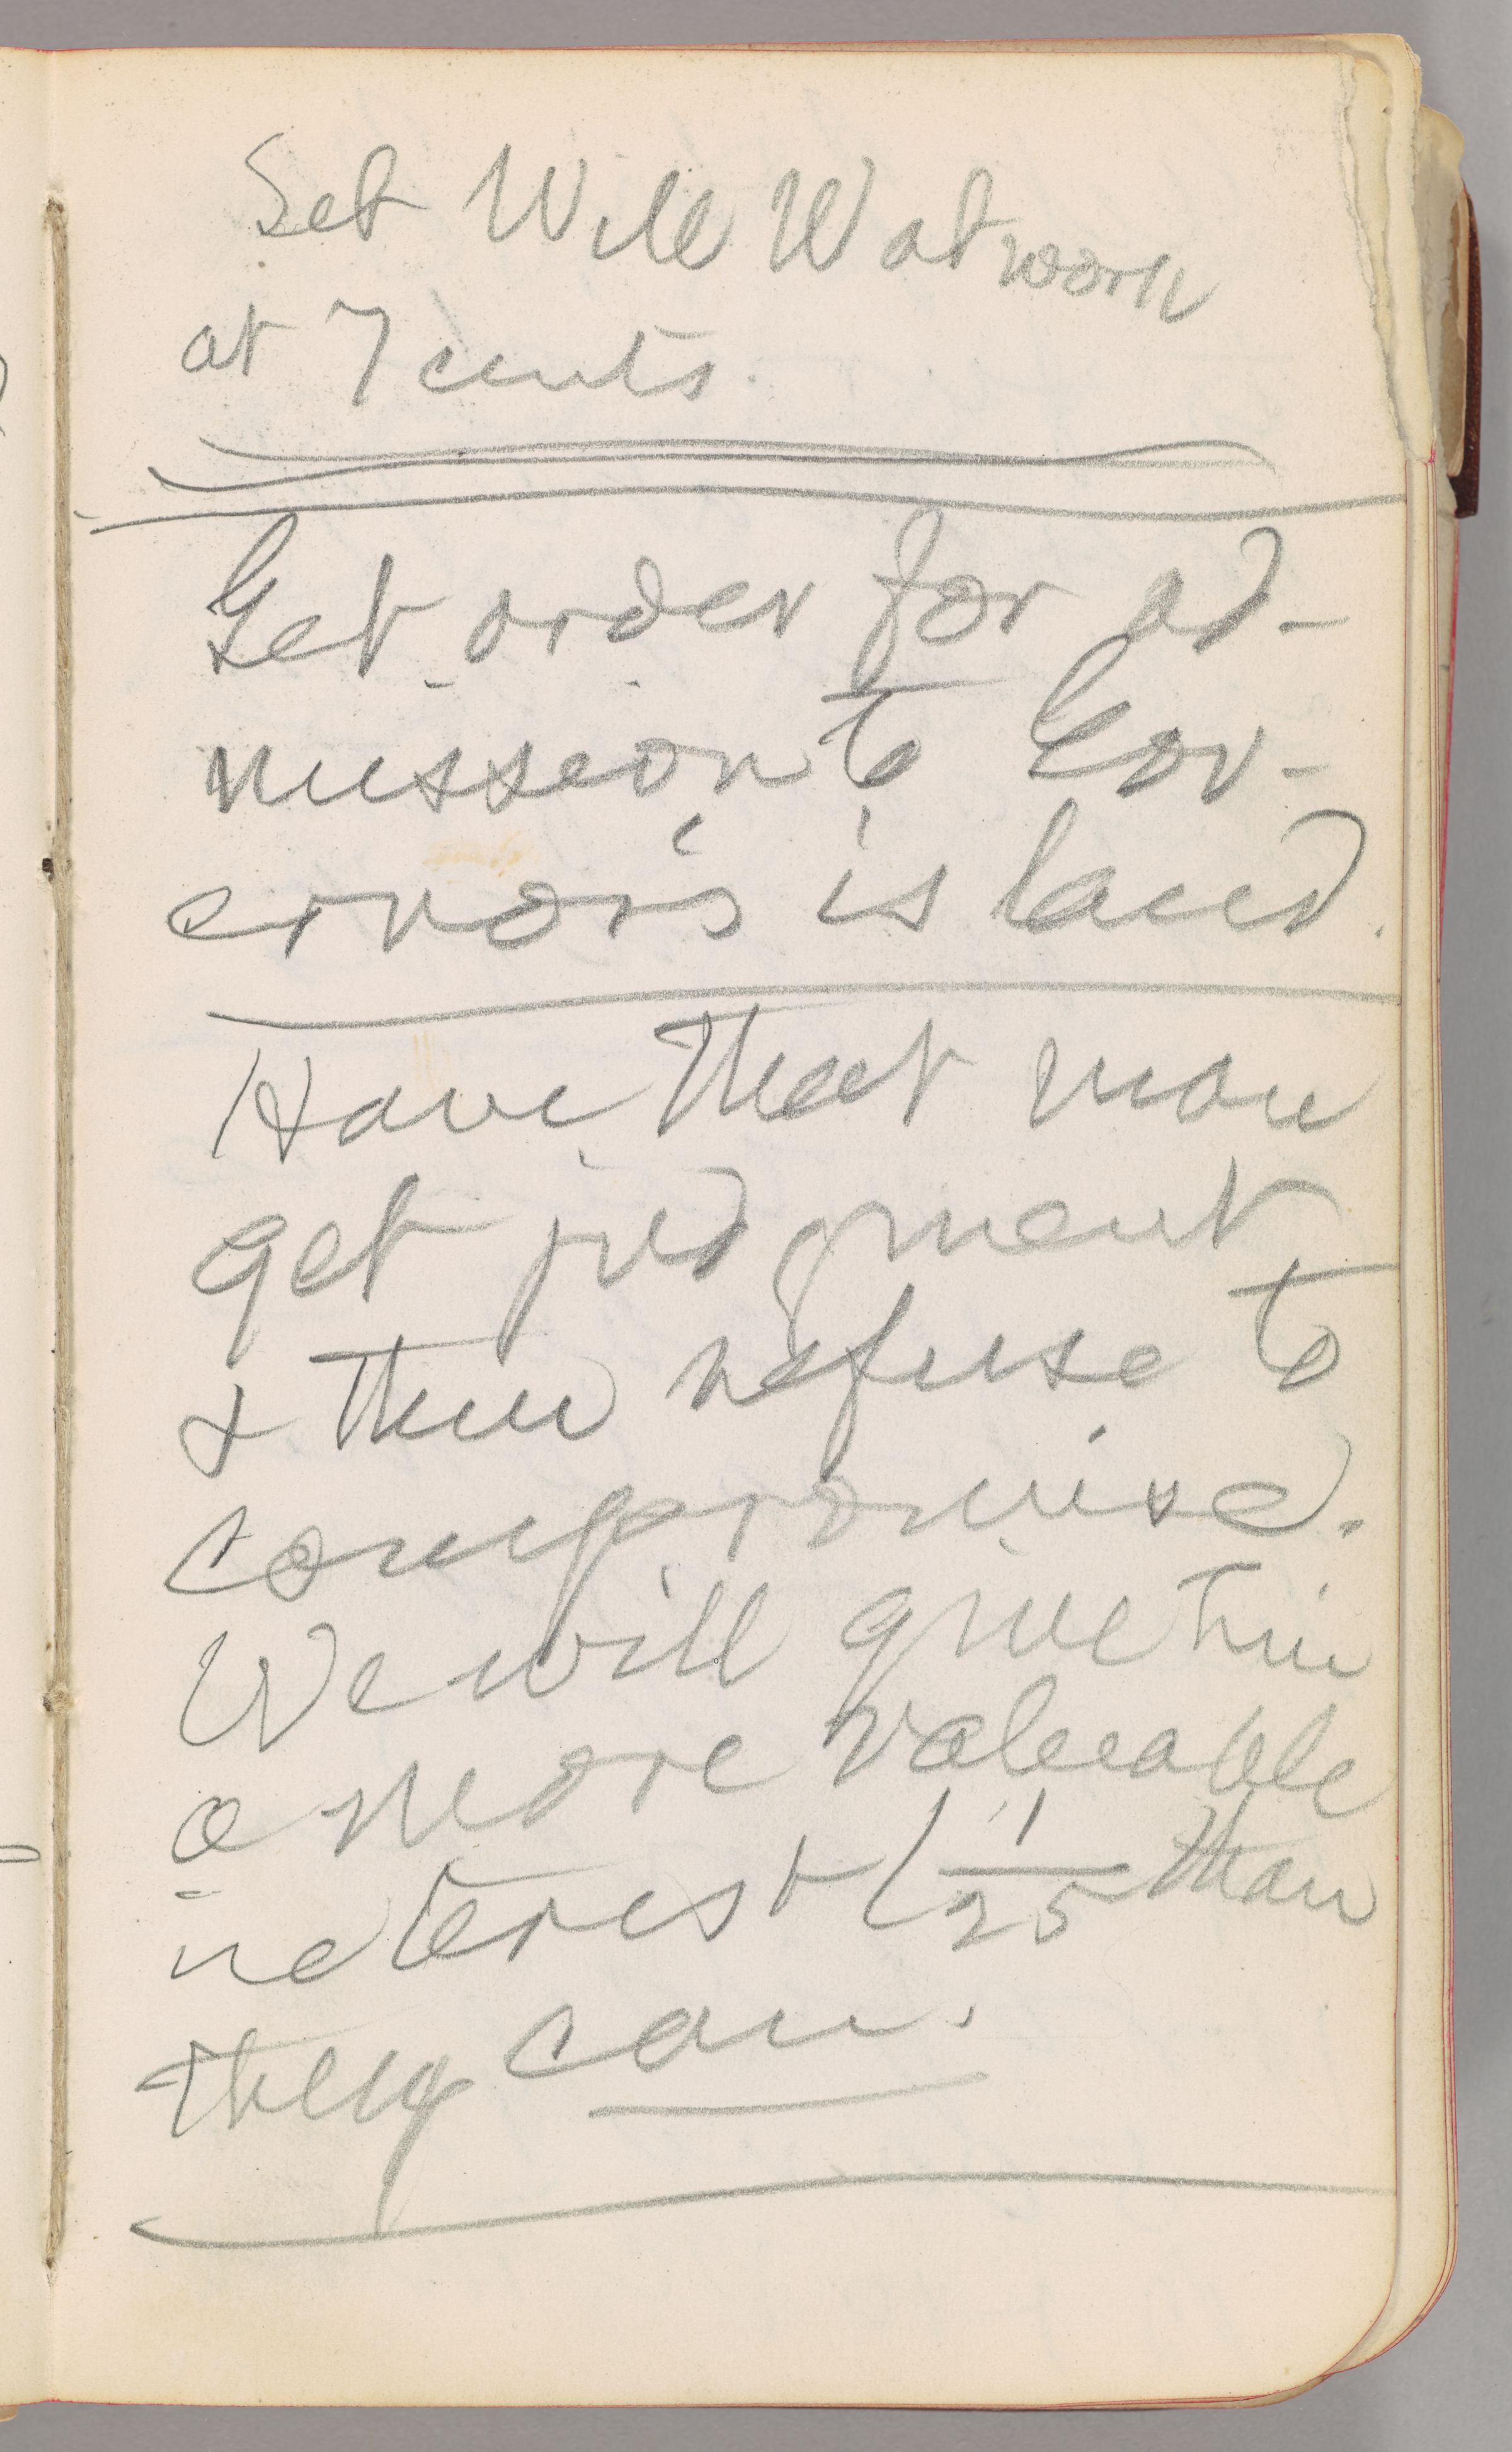 Set Will W at work
at 7 cents.
Get order for ad-
mission to Gov-
ernor's island.
Have that man
get judgment
& then refuse to
compromise.
We will give him
a more valuable
interest (1/25 than
they can.